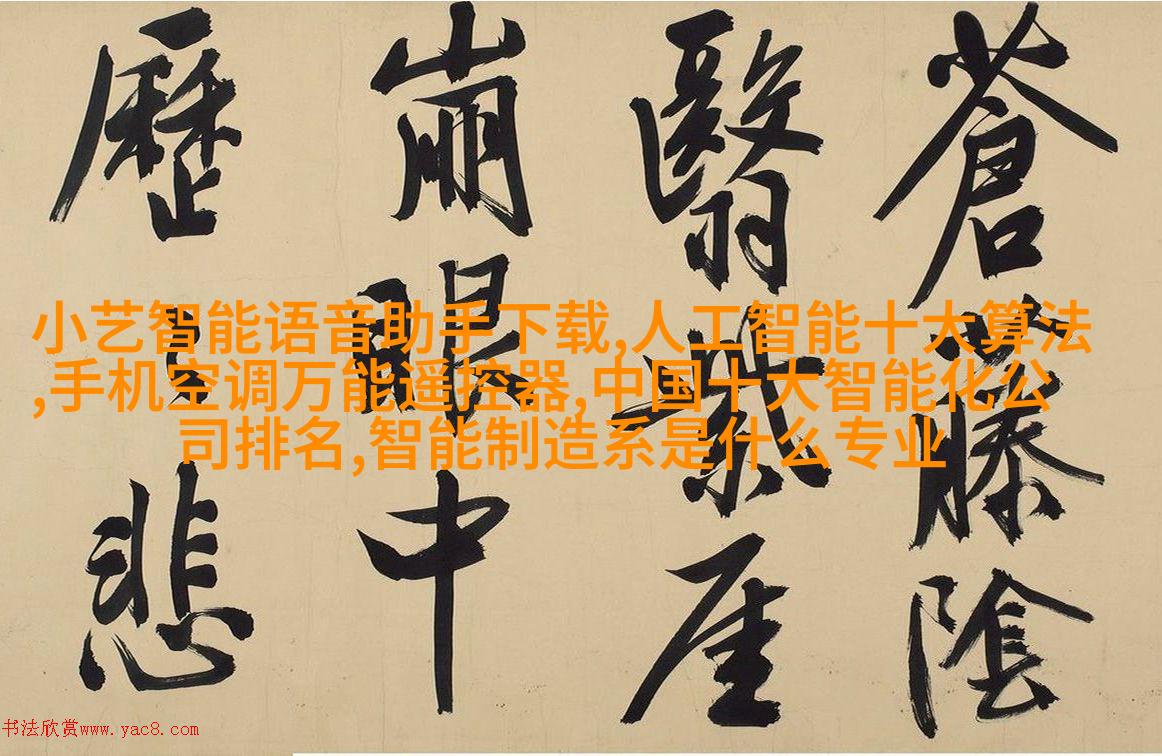 蒼藤陰
翳紫厓
崩眼中
歷悲
小艺智能语音助手下载,人工智能十大算法
,手机空调万能遥控器,中国十大智能化公
司排名,智能制造系是什么专业
书法欣赏www.yac8.com